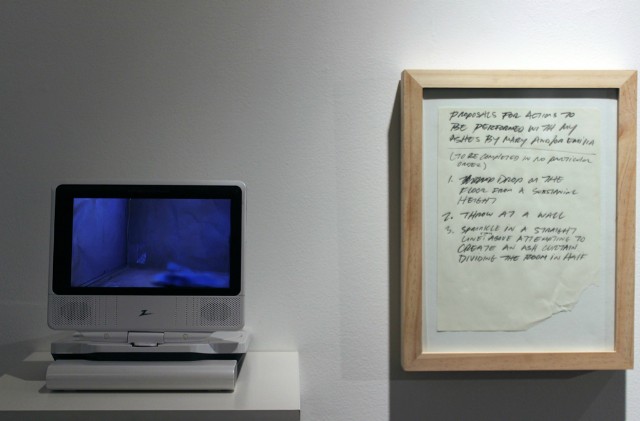 PROPOSALS FOR ACTIONS TO
BE PERFORMED WITH MY
ASHES BY MARY AND/OR EMILIA
(TO BE COMPLETED IN NO PARTICULAR
ORDER)
1. DROP ON THE
FLOOR FROM A SUBSTANTIAL
HEIGHT
2. THROW AT A WALL
3. SPRINKLE IN A STRAIGHT
LINE ABOVE ATTEMPTING TO
CREATE AN ASH CURTAIN
DIVIDING THE ROOM IN HALF